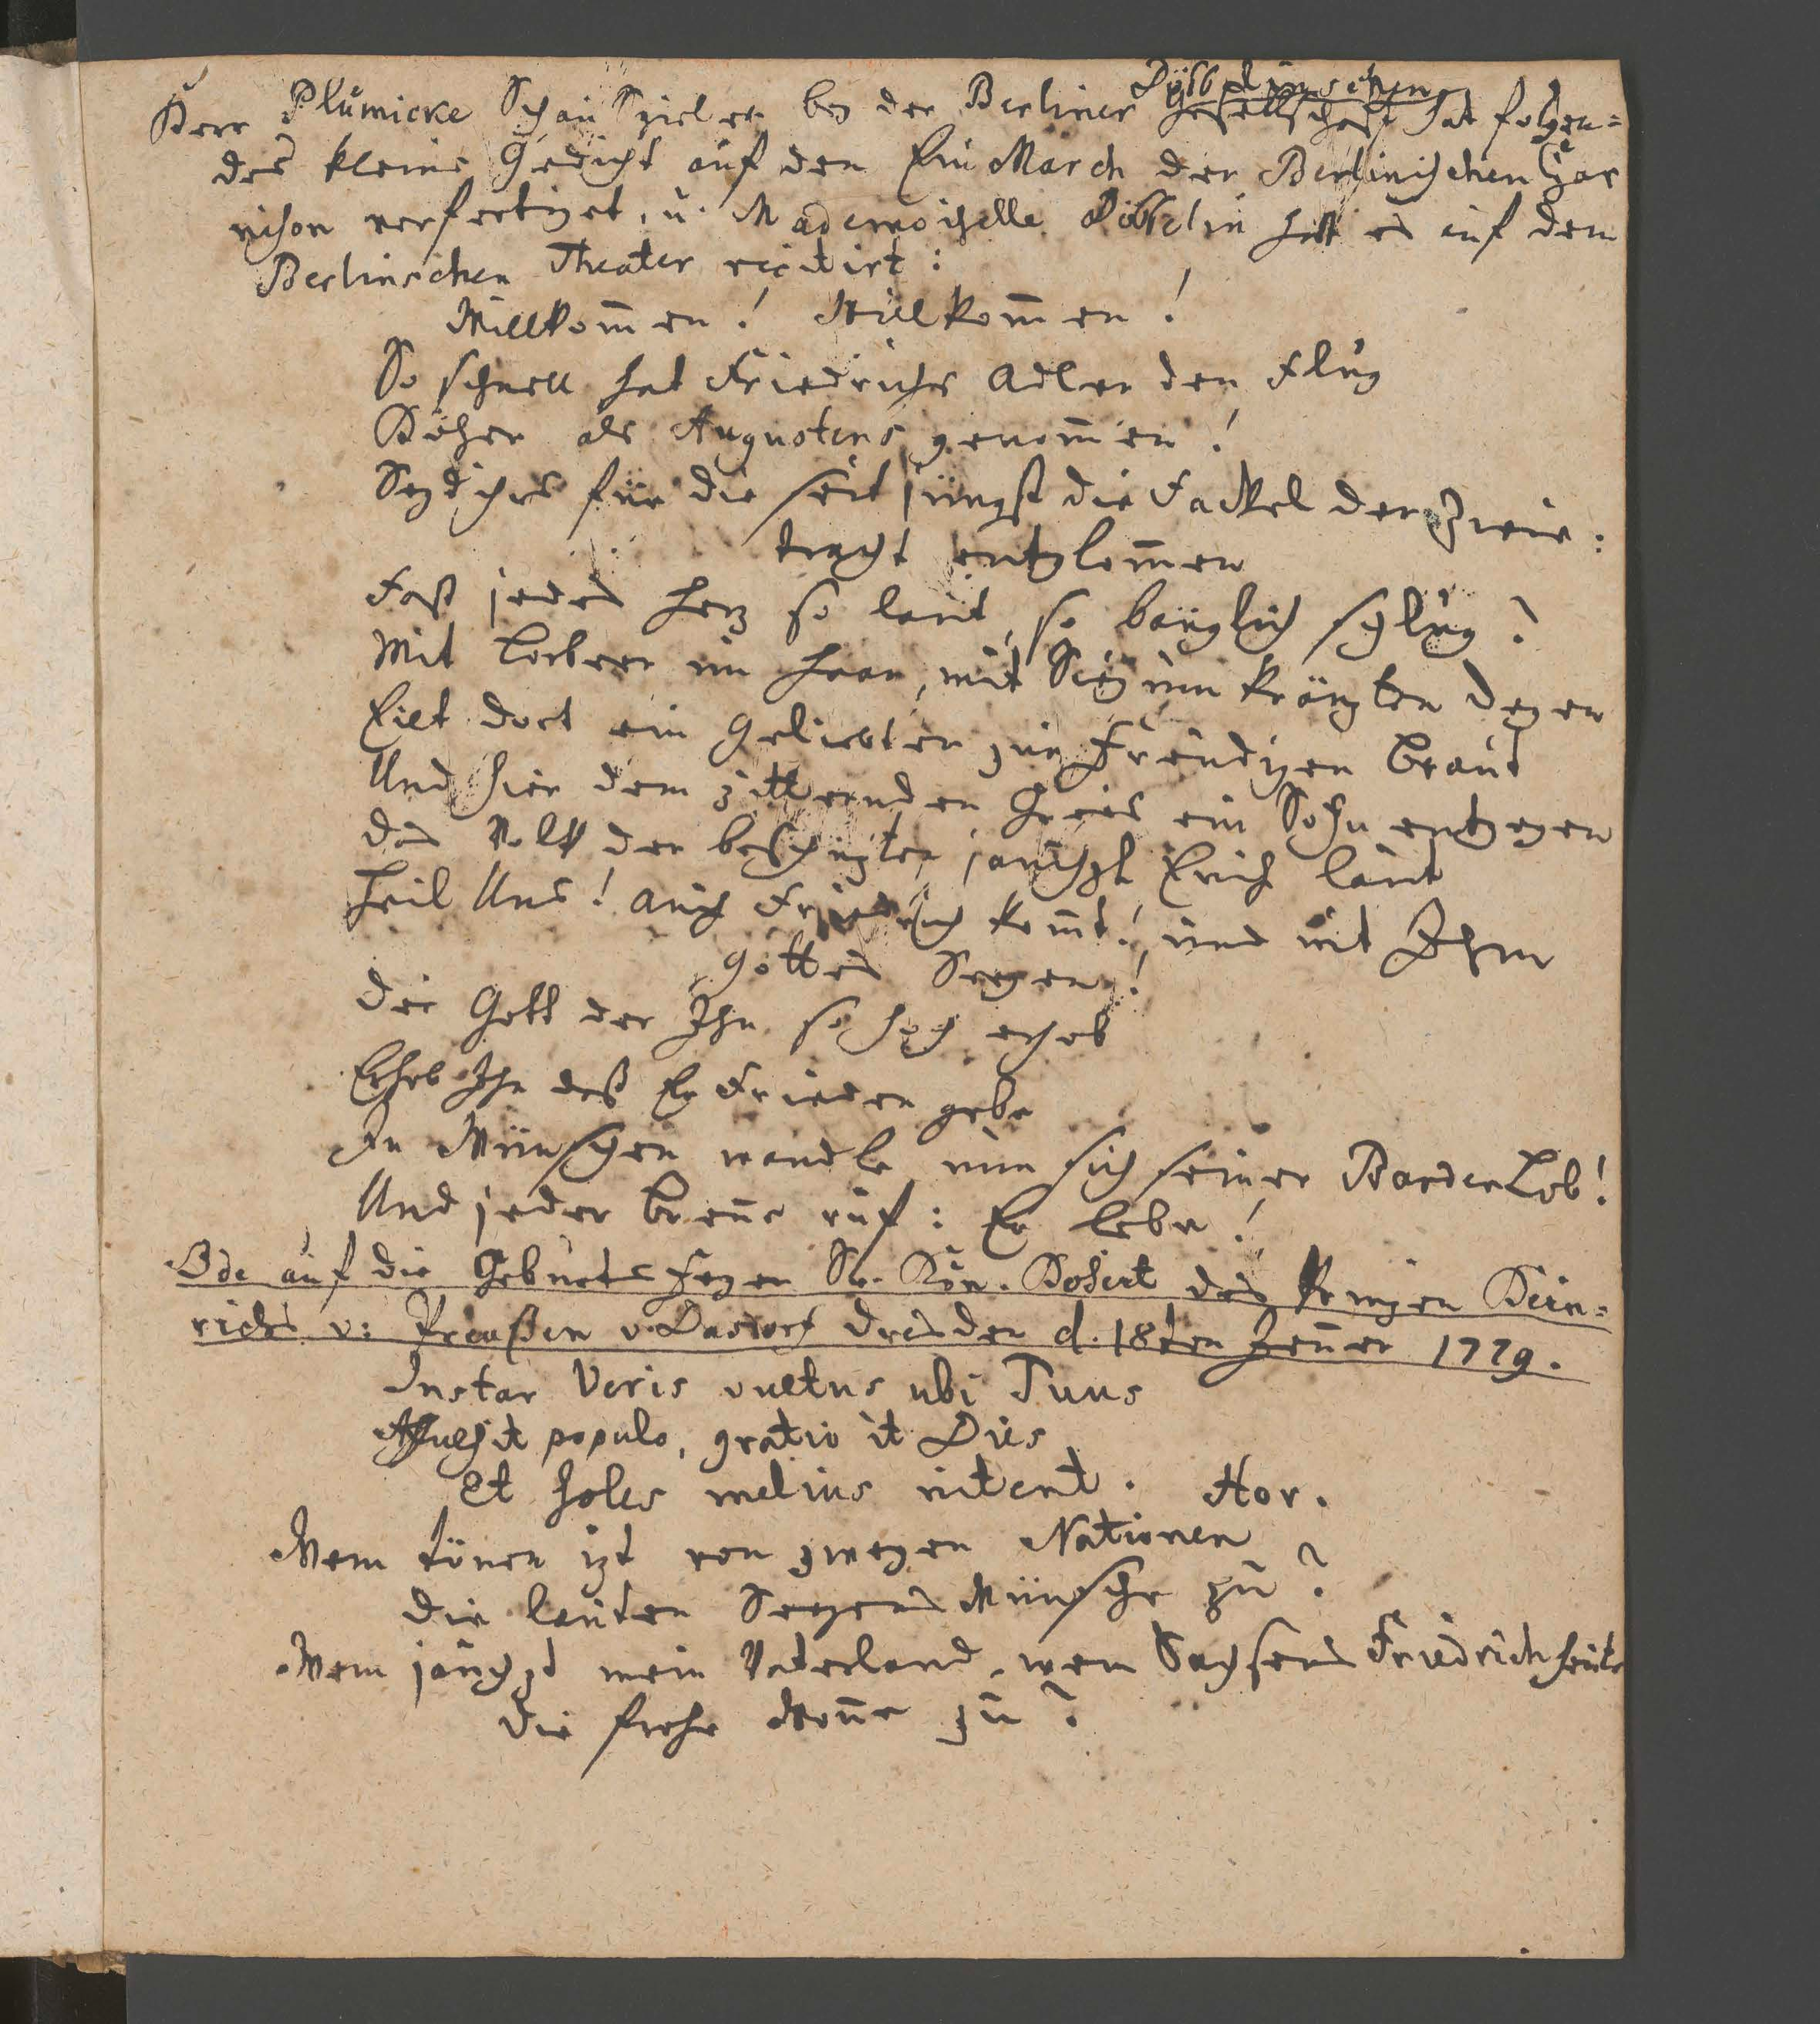 Döbbelinschen
Herr Plümicke Schauspieler bey der Berliner Gesellschaft hat folgen=
des kleine Gedicht auf den Ein March der Berlinischen Gar
nison verfertiget, u. Mademoiselle Döbbelin hatt es auf dem
Berlinschen Theater recitirt:
Willkom̅en! Willkom̅en!
So schnell hat Friedrichs Adler den Flug
Höher als Augustens genom̅en!
Seyd ihrs für die seit jüngst die Fackel der Zwie:
tracht entglom̅en
Fast jedes Herz so laut, so bänglich schlug?
Mit Lorbeer im Haar, mit Sieg umkränzten Degen
Eilt dort ein Geliebter zur Freudigen Braut
Und hier dem zitternden Greis ein Sohn entgegen
das Volk der beschützten jauchzt Euch laut
Heil Uns! auch Friedrich kom̅t! und mit Ihm
Gottes Seegen!
Der Gott der Ihn so hoch erhob
Erhob Ihn daß Er Frieden gebe
In Wünschen wandle nun sich seiner Barden Lob!
Und jeder Bren̅e ruf: Er lebe!
Ode auf die Geburts Feyer Sr. Kön. Hoheit des Prinzen Hein=
richs v: Preußen v. Dasdorf Dresden d. 18ten Jen̅er 1779.
Instar Veris vultus ubi Tuus
Affulsit populo, gratio it Dies
Et soles melius nitent. Hor.
Wem tönen izt von zweyen Nationen
die lauten Seegens Wünsche zu?
Wem jauchzt mein Vaterland, wem Sachsens Friedrich heute
die frohe Won̅e zu?